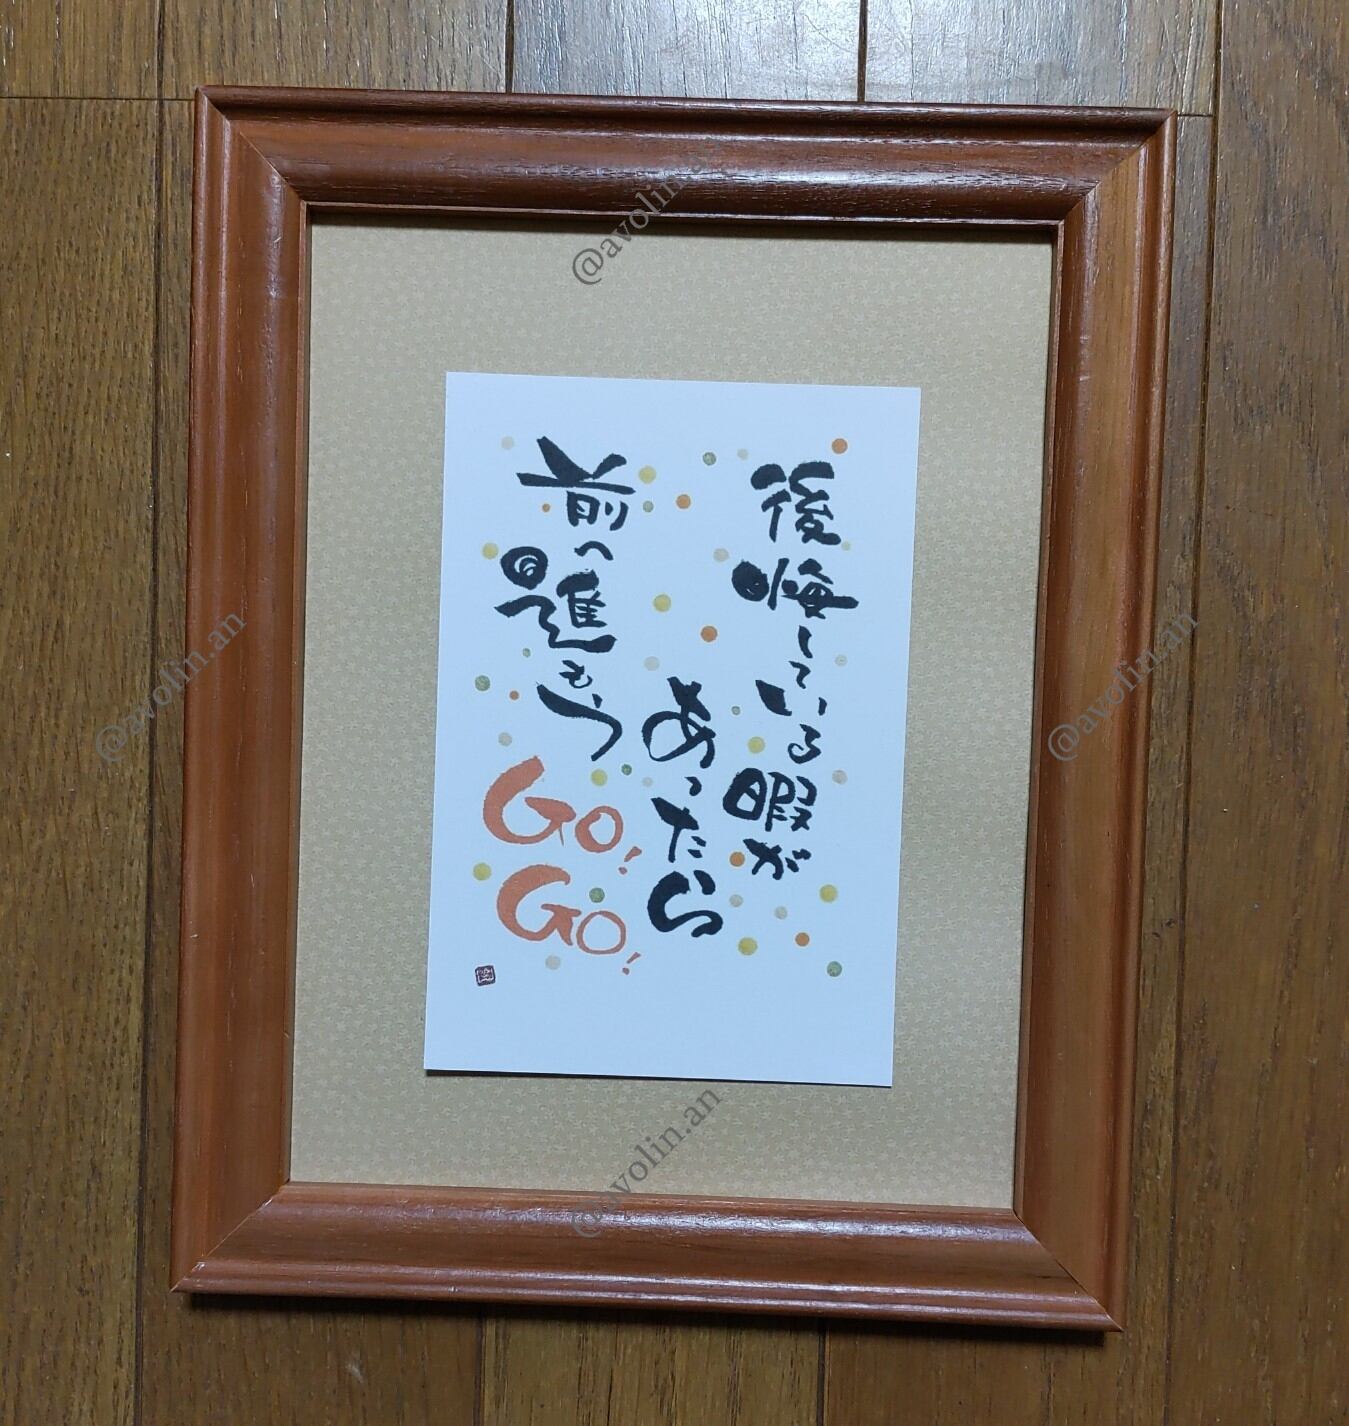 後悔している暇が
あったら
前へ進もう
GO!
GO!
@avolin.an
@avolin.an
@avolin.an
@avolin.an